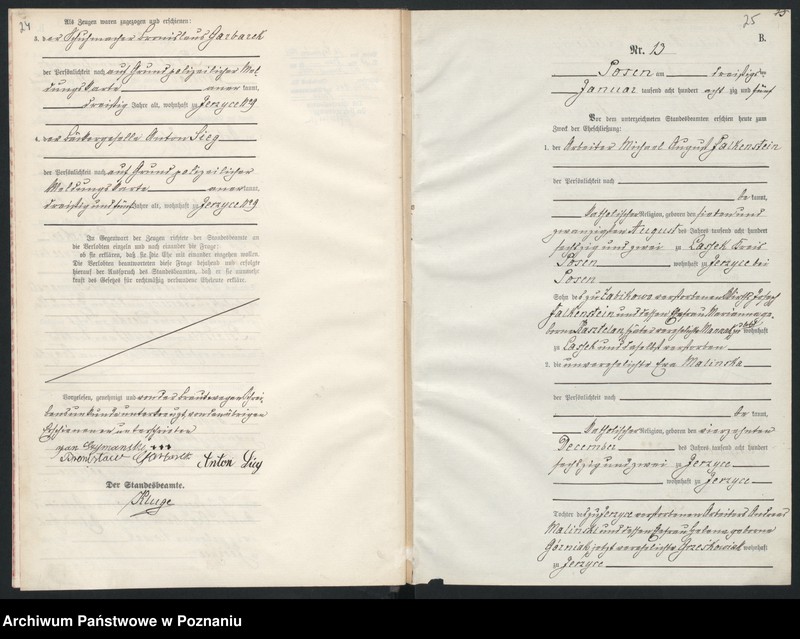 24
Als Zeugen waren zugezogen und erschienen:
3. der Schuhmacher Bronislaus Garbarek
der Persönlichkeit nach auf Grund polizeilicher Mel-
dungskarte anerkannt,
dreißig Jahre alt, wohnhaft zu Jerzyce No 9
4. der Bäckergeselle Anton Sieg
der Persönlichkeit nach auf Grund polizeilicher
Meldungskarte anerkannt,
dreißig und fünf Jahre alt, wohnhaft zu Jerzyce No 9
In Gegenwart der Zeugen richtete der Standesbeamte an
die Verlobten einzeln und nach einander die Frage:
ob sie erklären, daß sie die Ehe mit einander eingehen wollen.
Die Verlobten beantworteten diese Frage bejahend und erfolgte
hierauf der Ausspruch des Standesbeamten, daß er sie nunmehr
kraft des Gesetzes für rechtmäßig verbundene Eheleute erkläre.
Vorgelesen, genehmigt und von der Braut wegen Schrei-
bensunkunde unterkreuzt, von den übrigen
Erschienenen unterschrieben
Jan Szymański +++
Bronisław Garbarek Anton Sieg
Der Standesbeamte.
Kluge
25
B.
Nr. 13
Posen am dreißigsten
Januar tausend acht hundert acht zig und fünf
Vor dem unterzeichneten Standesbeamten erschien heute zum
Zweck der Eheschließung:
1. der Arbeiter Michael August Falkenstein
der Persönlichkeit nach
be kannt,
katholischer Religion, geboren den sieben und
zwanzigsten August des Jahres tausend acht hundert
sechzig und zwei zu Lassek Kreis
Posen wohnhaft zu Jerzyce bei
Posen
Sohn des zu Zabikowo verstorbenen Wirths Josef
Falkenstein und dessen Ehefrau Marianna ge-
borene wohnhaft
zu Lassek und daselbst verstorben
2. die unverehelichte Eva Malinska
der Persönlichkeit nach
be kannt,
katholischer Religion, geboren den vierzehnten
December des Jahres tausend acht hundert
sechzig und zwei zu Jerzyce
wohnhaft zu Jerzyce
Tochter des zu Jerzyce verstorbenen Arbeiters Andreas
Malinski und dessen Ehefrau Helena geborene
Górniak jetzt verehelichte Grzeskowiak wohnhaft
zu Jerzyce
Archiwum Państwowe w Poznaniu